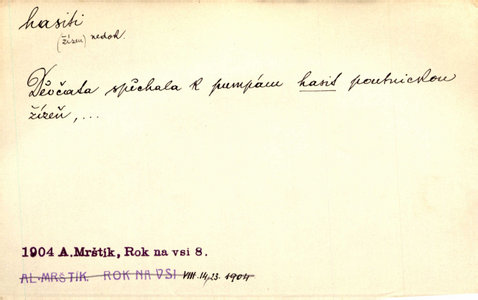 hasiti
(žízeň) nedok.
Děvčata spěchala k pumpám hasit poutnickou
žízeň, ...
1904 A. Mrštík, Rok na vsi 8.
AL. MRŠTÍK. ROK NA VSI VIII. 14, 23. 1904